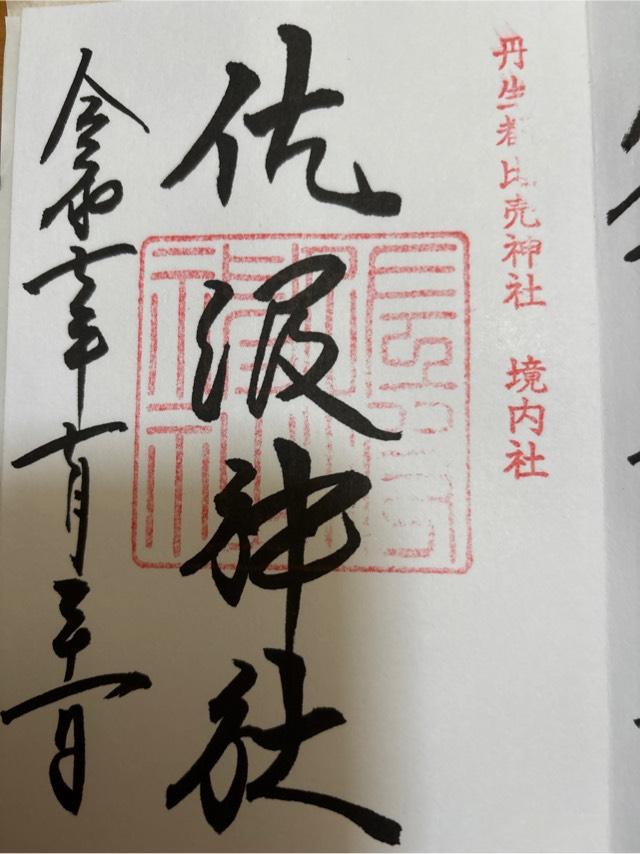 丹生都比売神社 境内社
佐波神社
令和六年十月三十一日